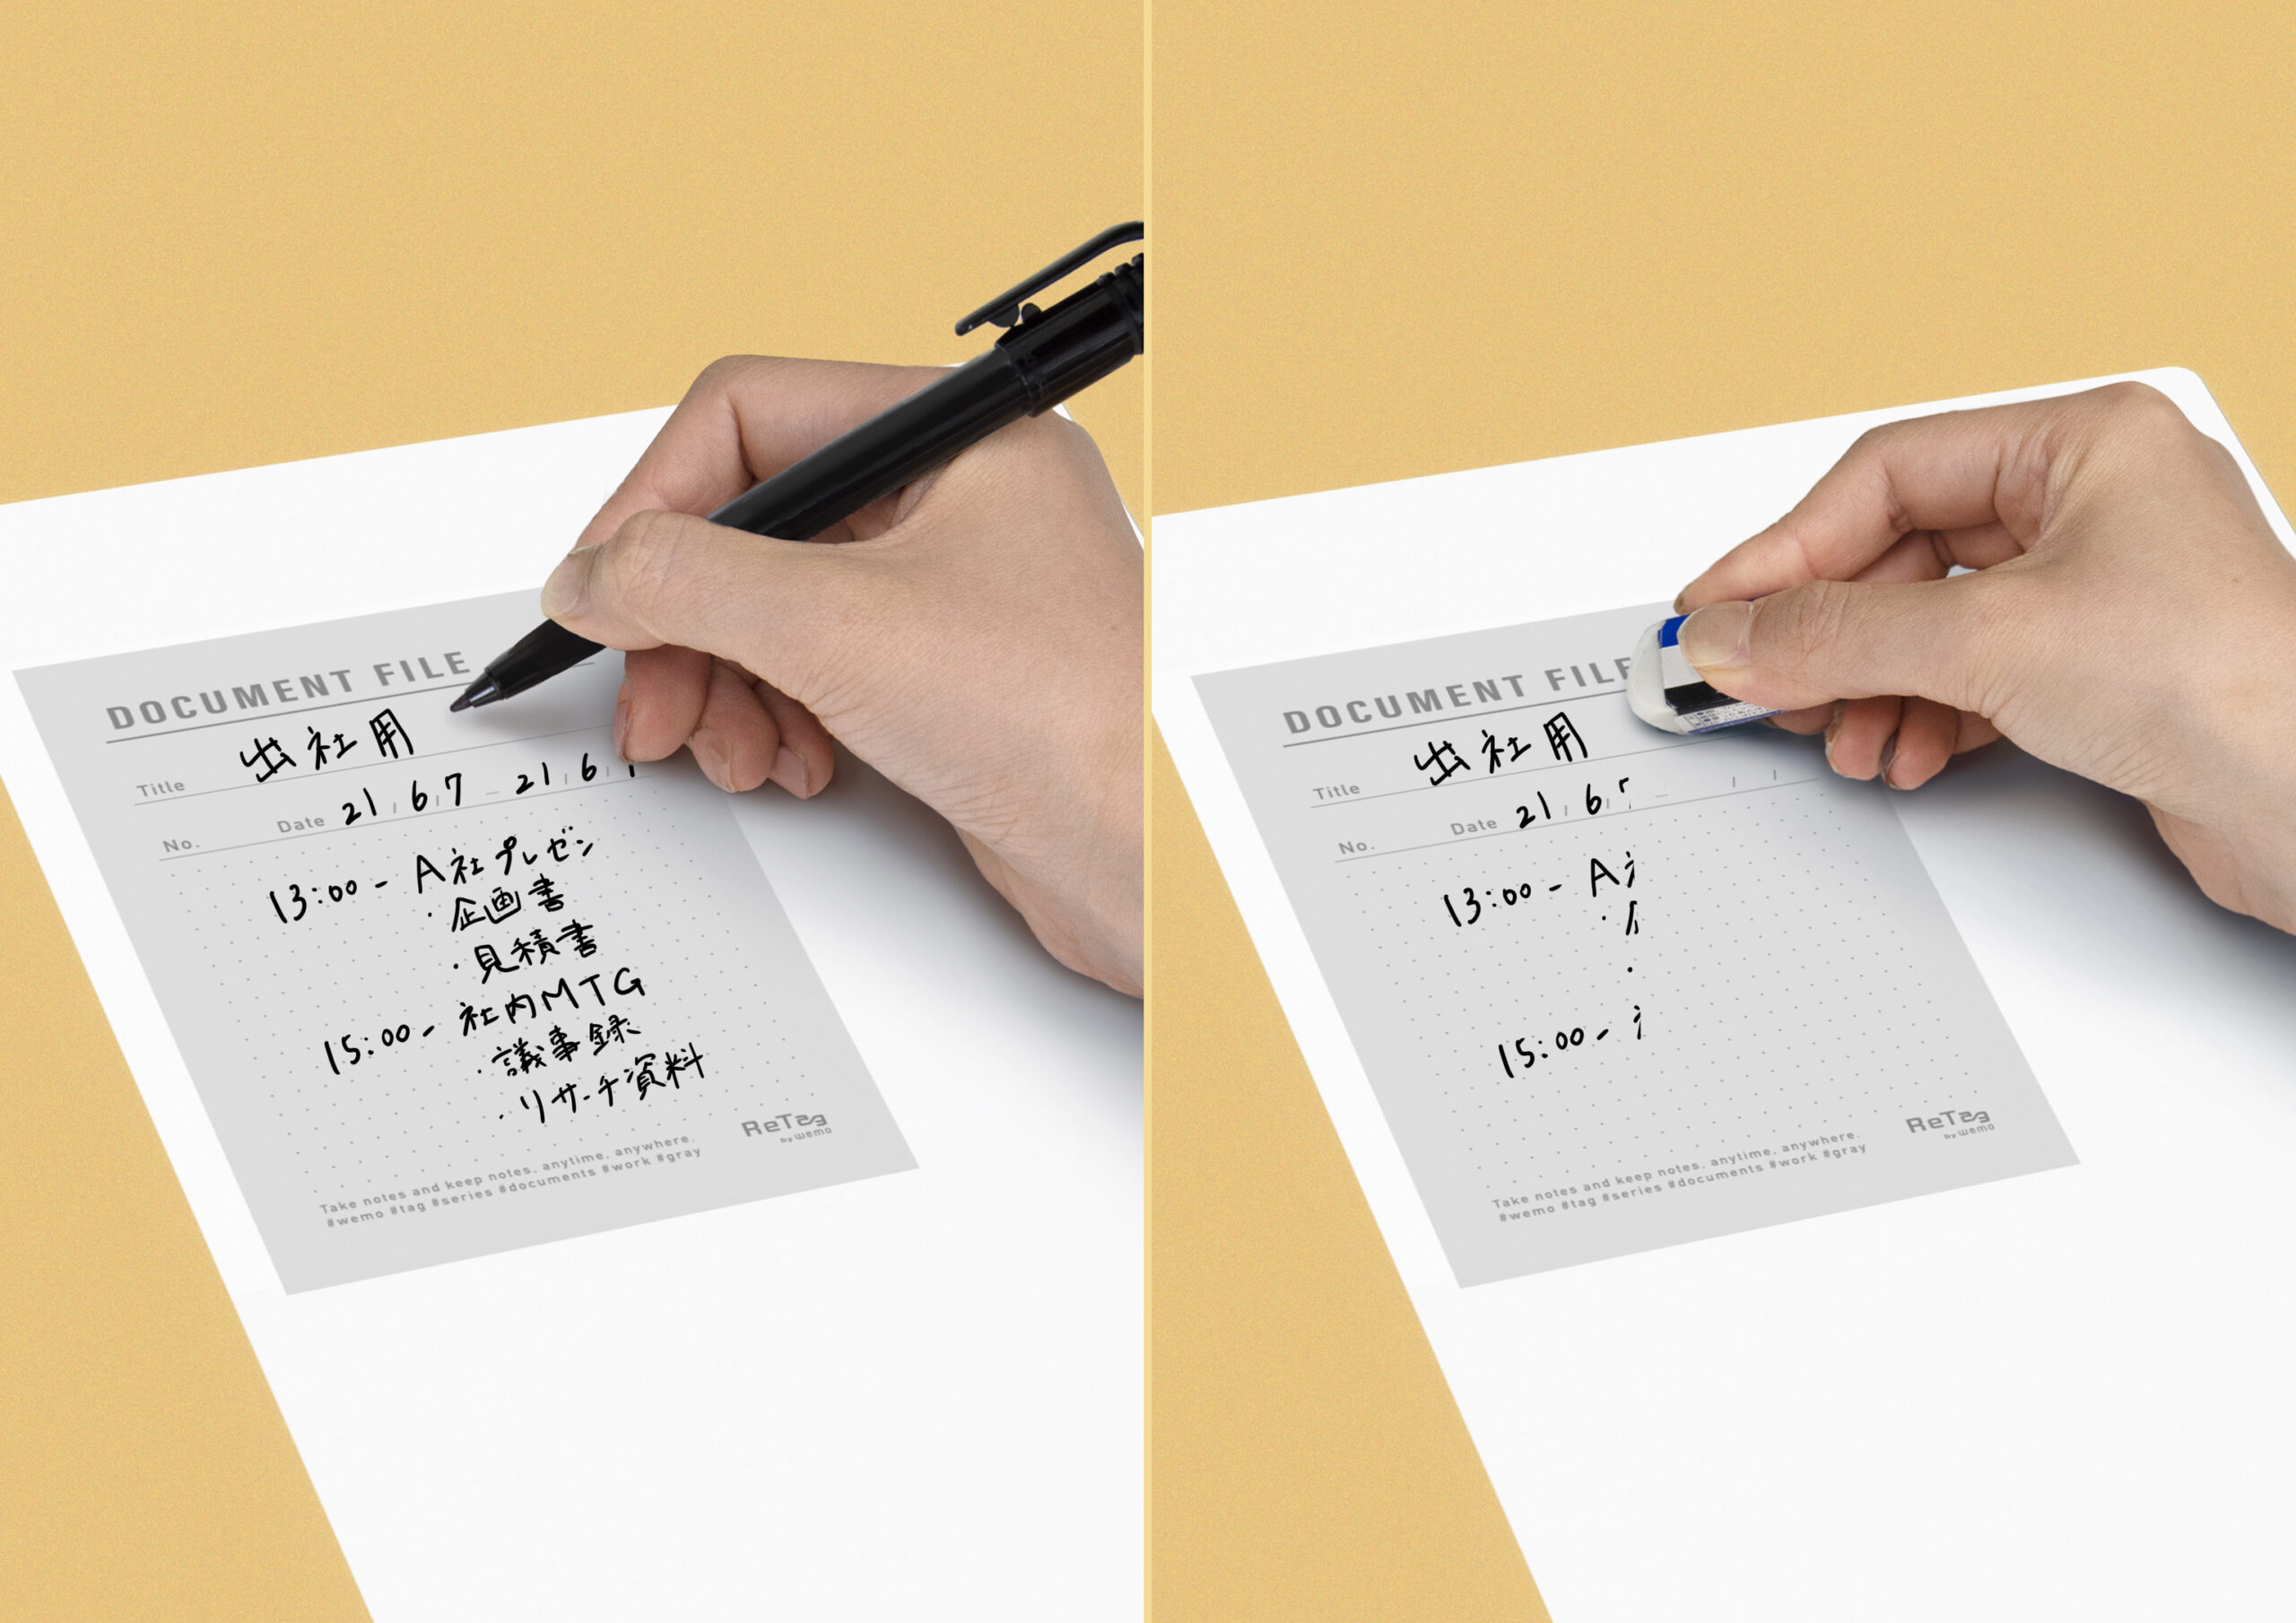 DOCUMENT FILE
Title 出社用
No. Date 21 / 6 / 7 – 21 / 6 /
13:00 - A社プレゼン
・企画書
・見積書
15:00 - 社内MTG
・議事録
・リサーチ資料
Take notes and keep notes, anytime, anywhere.
#wemo #tag #series #documents #work #gray
ReTag
by wemo
DOCUMENT FILE
Title 出社用
No. Date 21 / 6 / – / /
13:00 - A
・
・
15:00 -
Take notes and keep notes, anytime, anywhere.
#wemo #tag #series #documents #work #gray
ReTag
by wemo